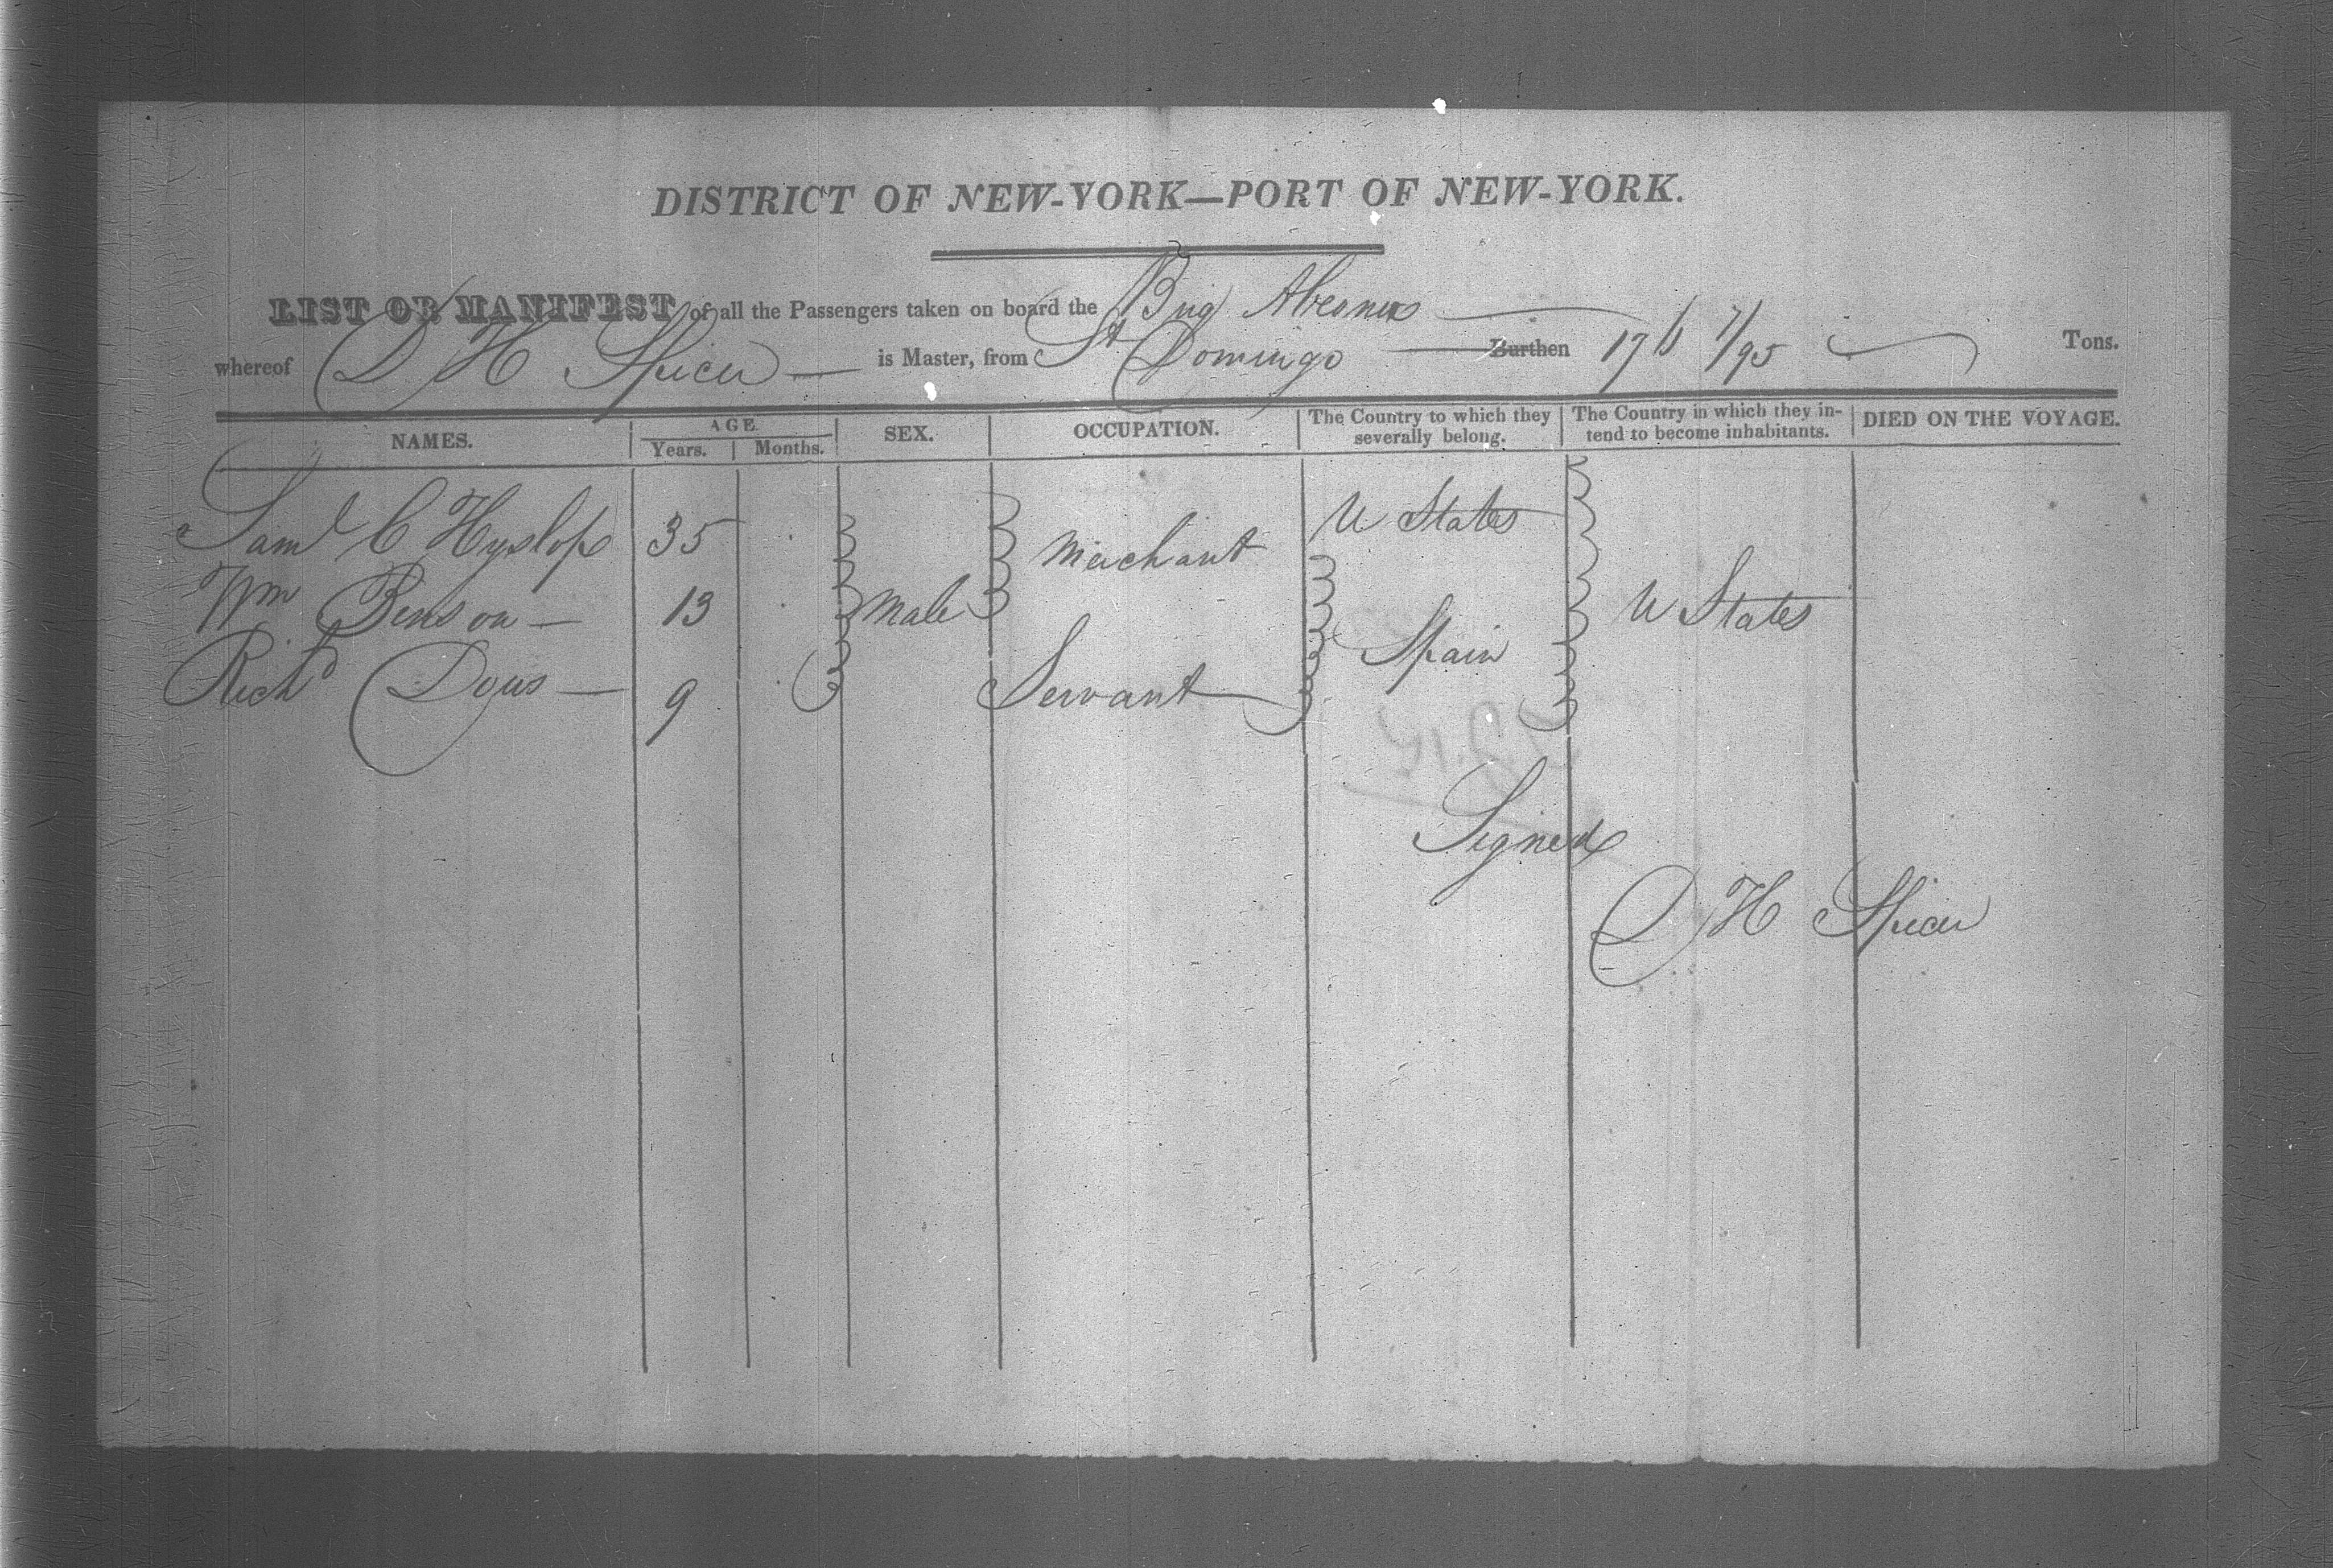 DISTRICT OF NEW-YORK—PORT OF NEW-YORK.
LIST OR MANIFEST of all the Passengers taken on board the Brig
whereof D H Spicer is Master, from St Domingo Burthen 176 7/95 Tons.
NAMES. AGE. Years. Months. SEX. OCCUPATION. The Country to which they severally belong. The Country in which they intend to become inhabitants. DIED ON THE VOYAGE.
Saml C Hyslop 35 Merchant U States
Wm Benson 13 Male U States
Spain
Richd 9 Servant
Signed
D H Spicer